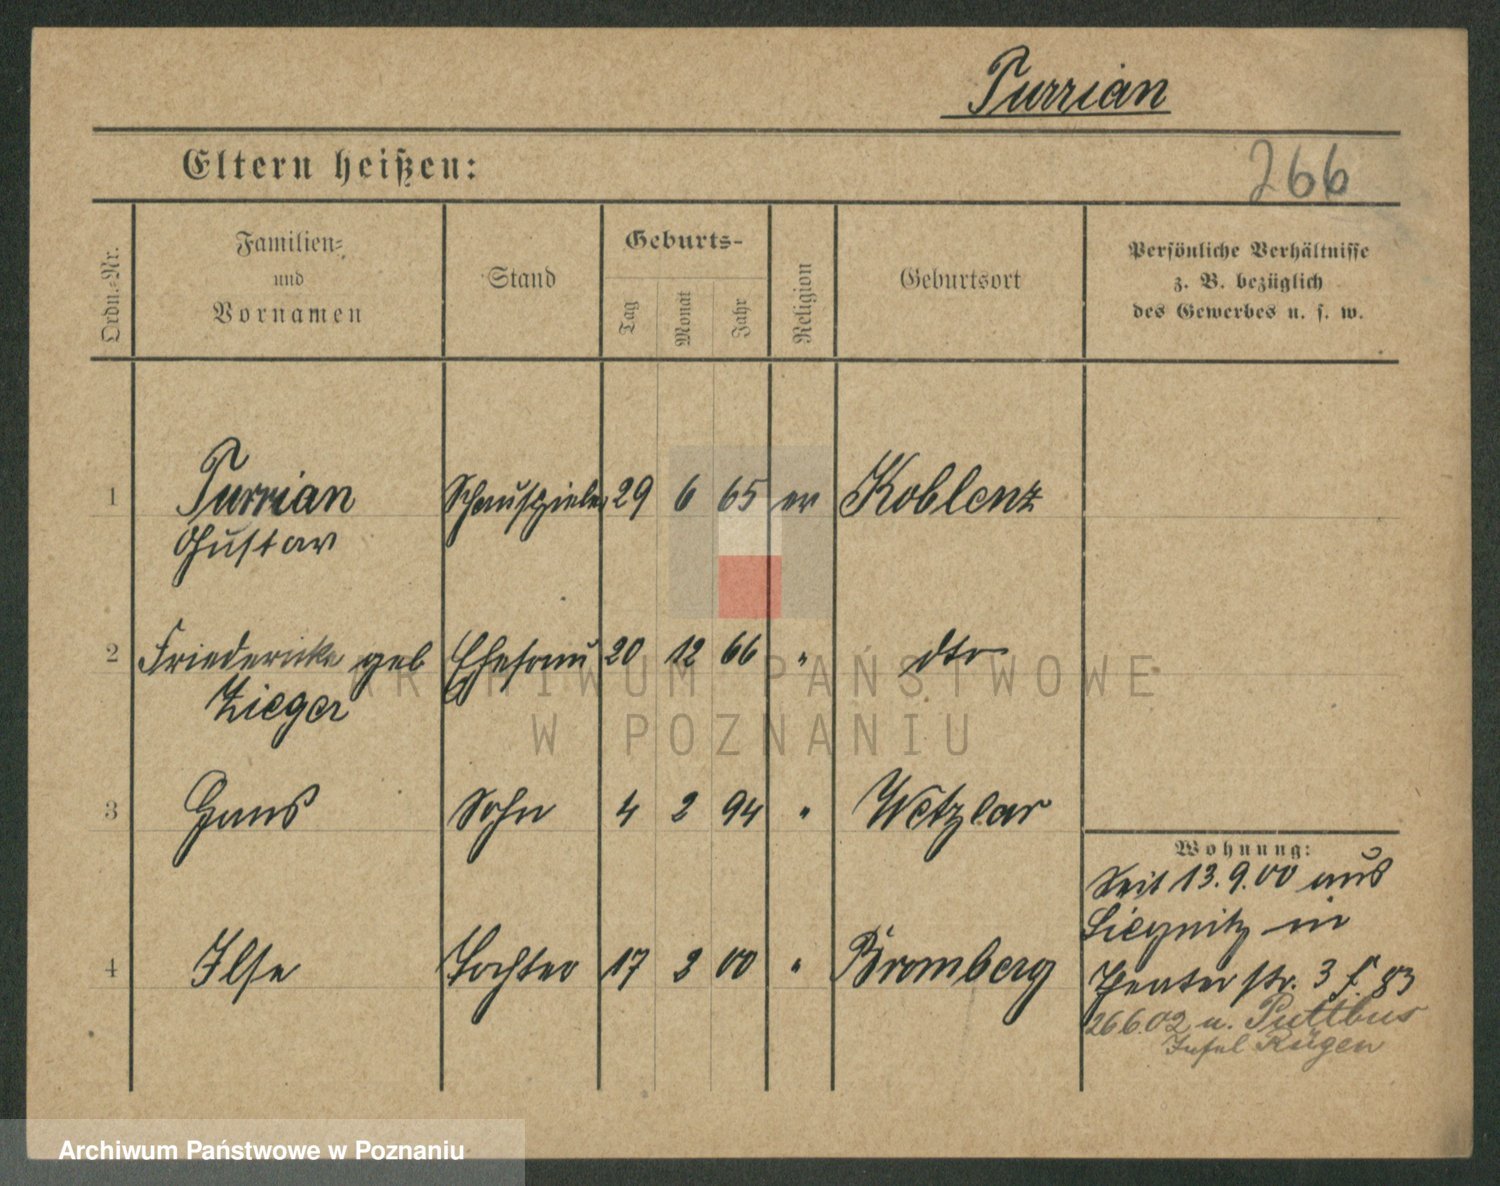 Purrian
Eltern heißen:
266
Ordn.-Nr.
Familien-
und
Vornamen
Stand
Geburts-
Tag
Monat
Jahr
Religion
Geburtsort
Persönliche Verhältnisse
z. B. bezüglich
des Gewerbes u. s. w.
1 Purrian Schauspieler 29 6 65 ev Koblenz
Gustav
2 Friedericke geb Ehefrau 20 12 66 " dto
Zieger
ARCHIWUM PAŃSTWOWE
W POZNANIU
3 Hans Sohn 4 2 94 " Wetzlar
Wohnung:
Seit 13.9.00 aus
Liegnitz in
4 Ilse Tochter 17 2 00 " Bromberg
Theaterstr. 3 f. 83
26.6.02 n. Puttbus
Insel Rügen
Archiwum Państwowe w Poznaniu